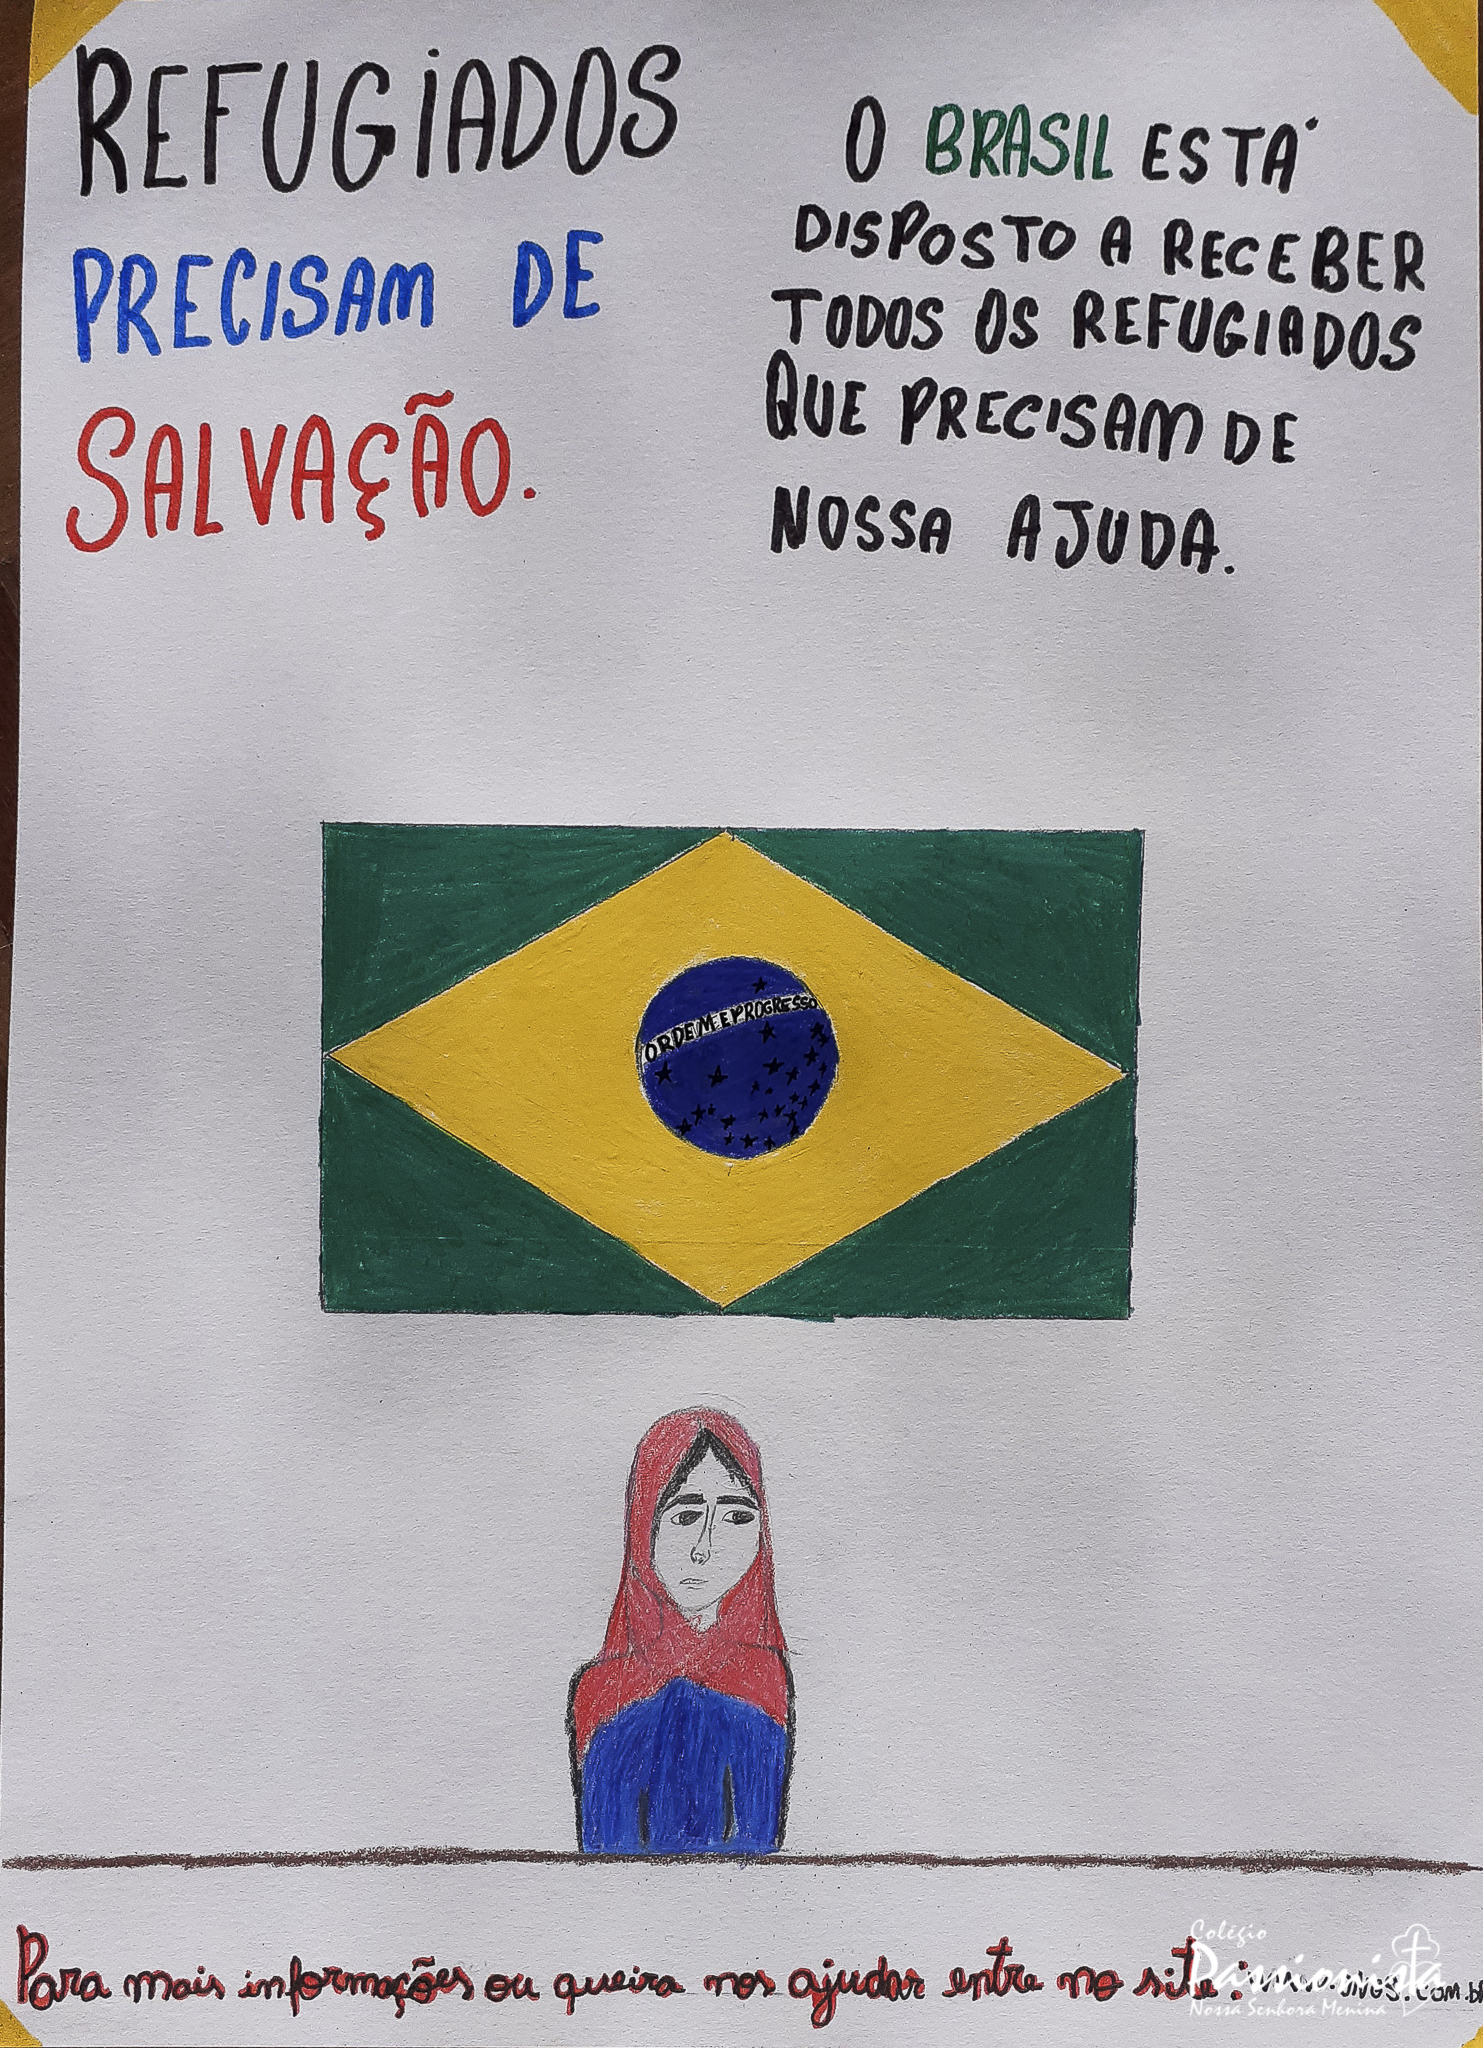 REFUGIADOS
PRECISAM DE
SALVAÇÃO.
O BRASIL ESTÁ
DISPOSTO A RECEBER
TODOS OS REFUGIADOS
QUE PRECISAM DE
NOSSA AJUDA.
ORDEM E PROGRESSO
Para mais informações ou queira nos ajudar entre no site:
Colégio
Passionista
Nossa Senhora Menina